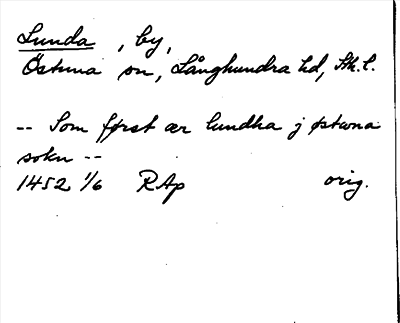 Lunda, by,
Östuna sn, Långhundra hd, Sth. l.
-- Som først ær lundha j østwna
sokn --
1452 1/6 RAp orig.